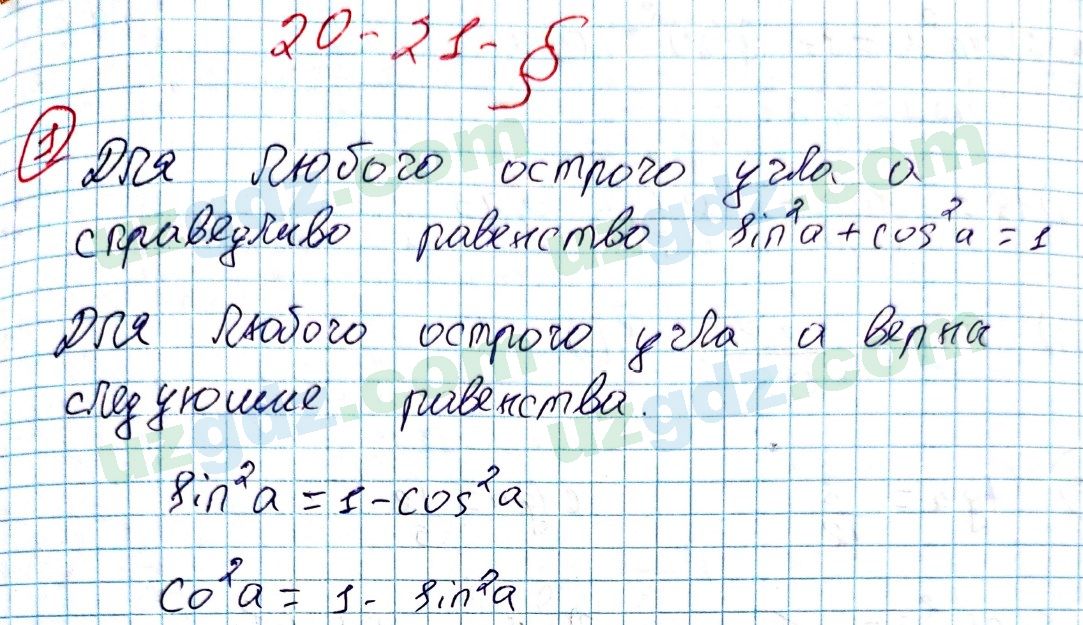 20-21-§
1
Для любого острого угла a
справедливо равенство sin²a + cos²a = 1
Для любого острого угла a верна
следуюшие равенства.
sin²a = 1 - cos²a
co²a = 1 - sin²a
uzgdz.com
uzgdz.com
uzgdz.com
uzgdz.com